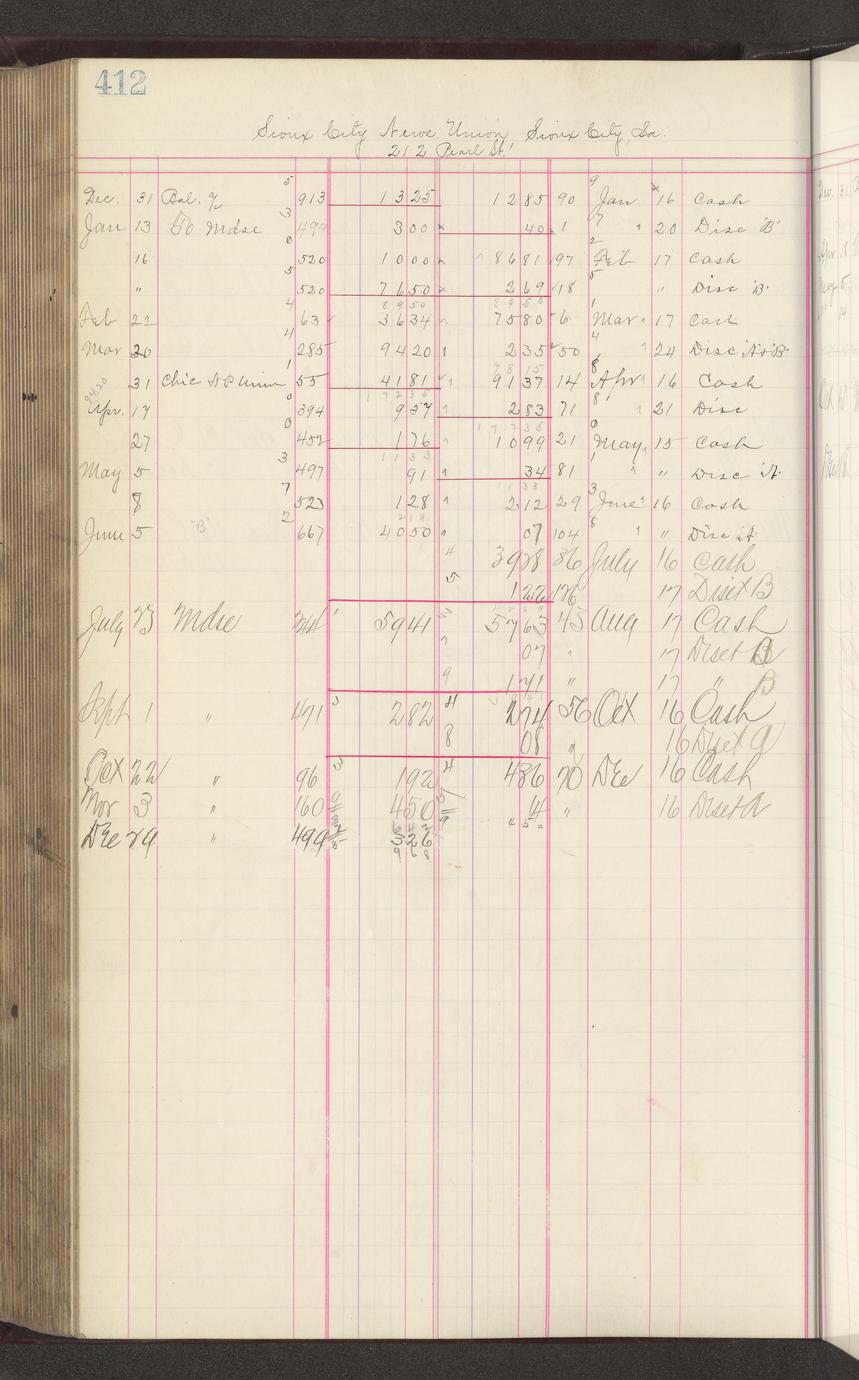 412
Sioux City News Union, Sioux City, Ia.
212 Pearl St.
Dec. 31 Bal. 913 1325 1285 90 Jan 16 Cash
Jan 13 To Mdse 499 300 40 1 " 20 Disc "B"
16 520 1000 8681 97 Feb 17 Cash
" 520 7650 269 18 " Disc "B"
8950 8950
Feb 22 63 3634 7580 6 Mar 17 Cash
Mar 20 285 9420 235 50 " 24 Disc A+B
9420 7815
31 Chic N P Union 55 4181 9137 14 Apr 16 Cash
17235
Apr. 17 394 957 283 71 " 21 Disc
17235
27 452 176 1099 21 May 15 Cash
1133
May 5 497 91 34 81 " " Disc A
1133
8 523 128 212 29 June 16 Cash
219
June 5 "B" 667 4050 07 104 " " Disc A
3928 86 July 16 Cash
122 176 17 Disct B
July 23 Mdse 344 5941 5763 45 Aug 17 Cash
07 " 17 Disct B
171 " 17 " B
Sept 1 " 471 282 274 56 Oct 16 Cash
08 " 16 Disct A
Oct 22 " 96 192 486 70 Dec 16 Cash
Nov 3 " 160 450 14 " 16 Disct A
642 450
Dec 29 " 499 326
968